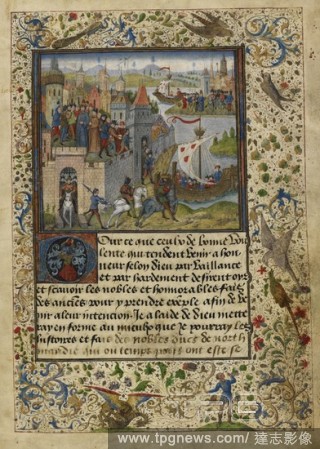 Our ce que ceulx de bonne vou
lente qui tendent venir a hon
neur selon dieu par vaillance
et par hardement desirent oir
et scavoir les nobles et honnorables fais
des anciens pour y prendre exemple afin de ve
nir a leur intencion. Je a laude de dieu mette
ray en forme au mieulx que je pourray les
histores et fais des nobles ducs de north
mandie qui ou temps passe ont este se
www.tpgnews.com/ 達志影像